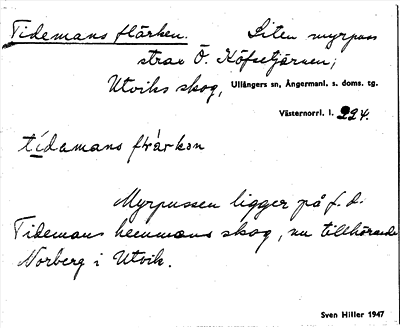 Tidemans flärken. Liten myrpuss
strax Ö. Köfsetjärnen;
Utviks skog, Ullångers sn, Ångermanl. s. doms. tg.
Västernorrl. l. 224.
tídamans flärkan
Myrpussen ligger på f. d.
Tidemans hemmans skog, nu tillhörande
Norberg i Utvik.
Sven Hiller 1947